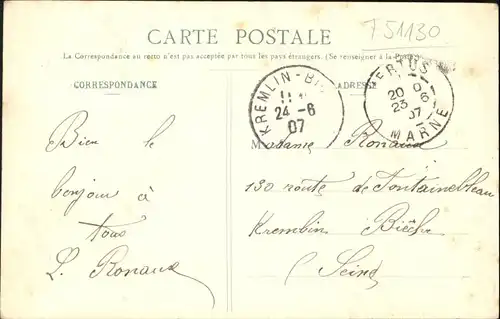 F51130
CARTE POSTALE
La Correspondance au recto n'est pas acceptée par tous les pays étrangers. (Se renseigner à la Poste)
CORRESPONDANCE
ADRESSE
KREMLIN-BI
24 -6
07
VERTUS
20 0
23 6
07
MARNE
Bien le
bonjour à
tous
L. Ronaux
Madame Ronaux
130 route de Fontainebleau
Krembin Bicêtre
(Seine)